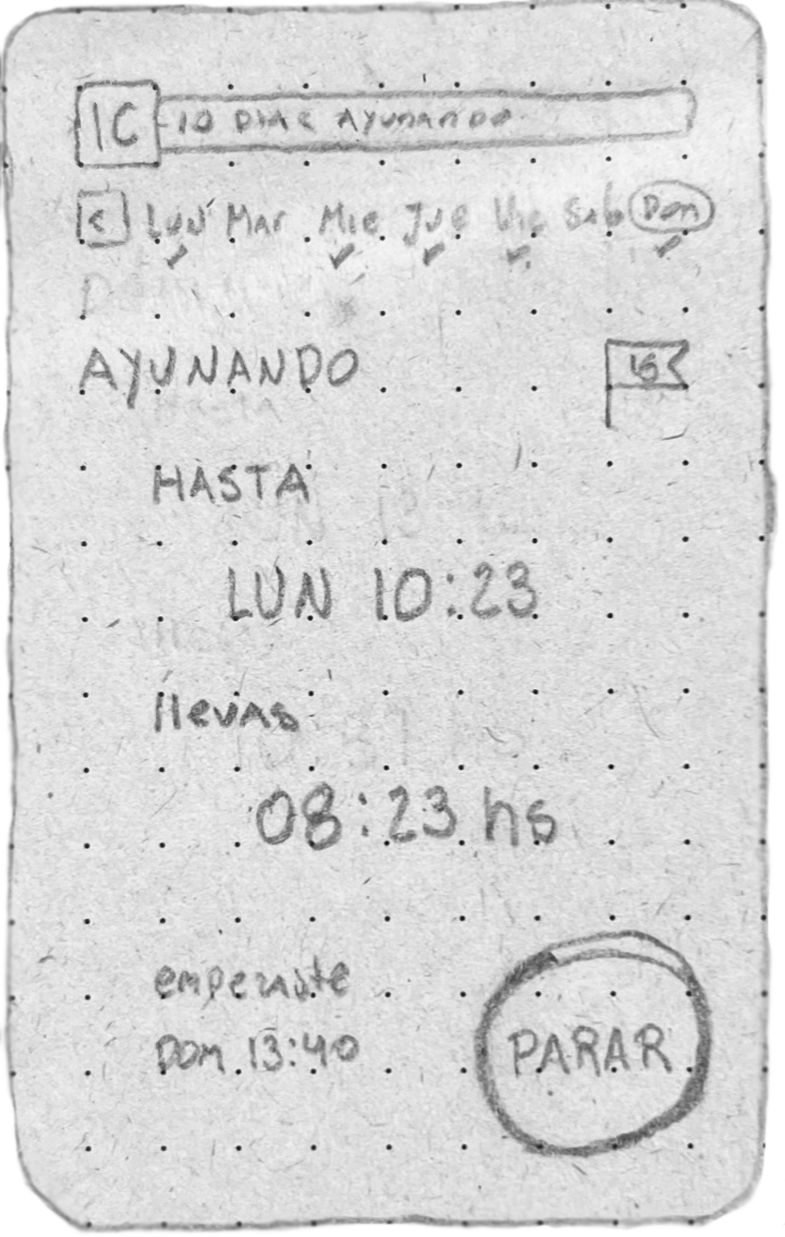 IC 10 DIAS AYUNANDO
< LUN Mar Mie Jue Vie Sab Dom
AYUNANDO
HASTA
LUN 10:23
llevas
08:23 hs
empezaste
DOM 13:40
PARAR